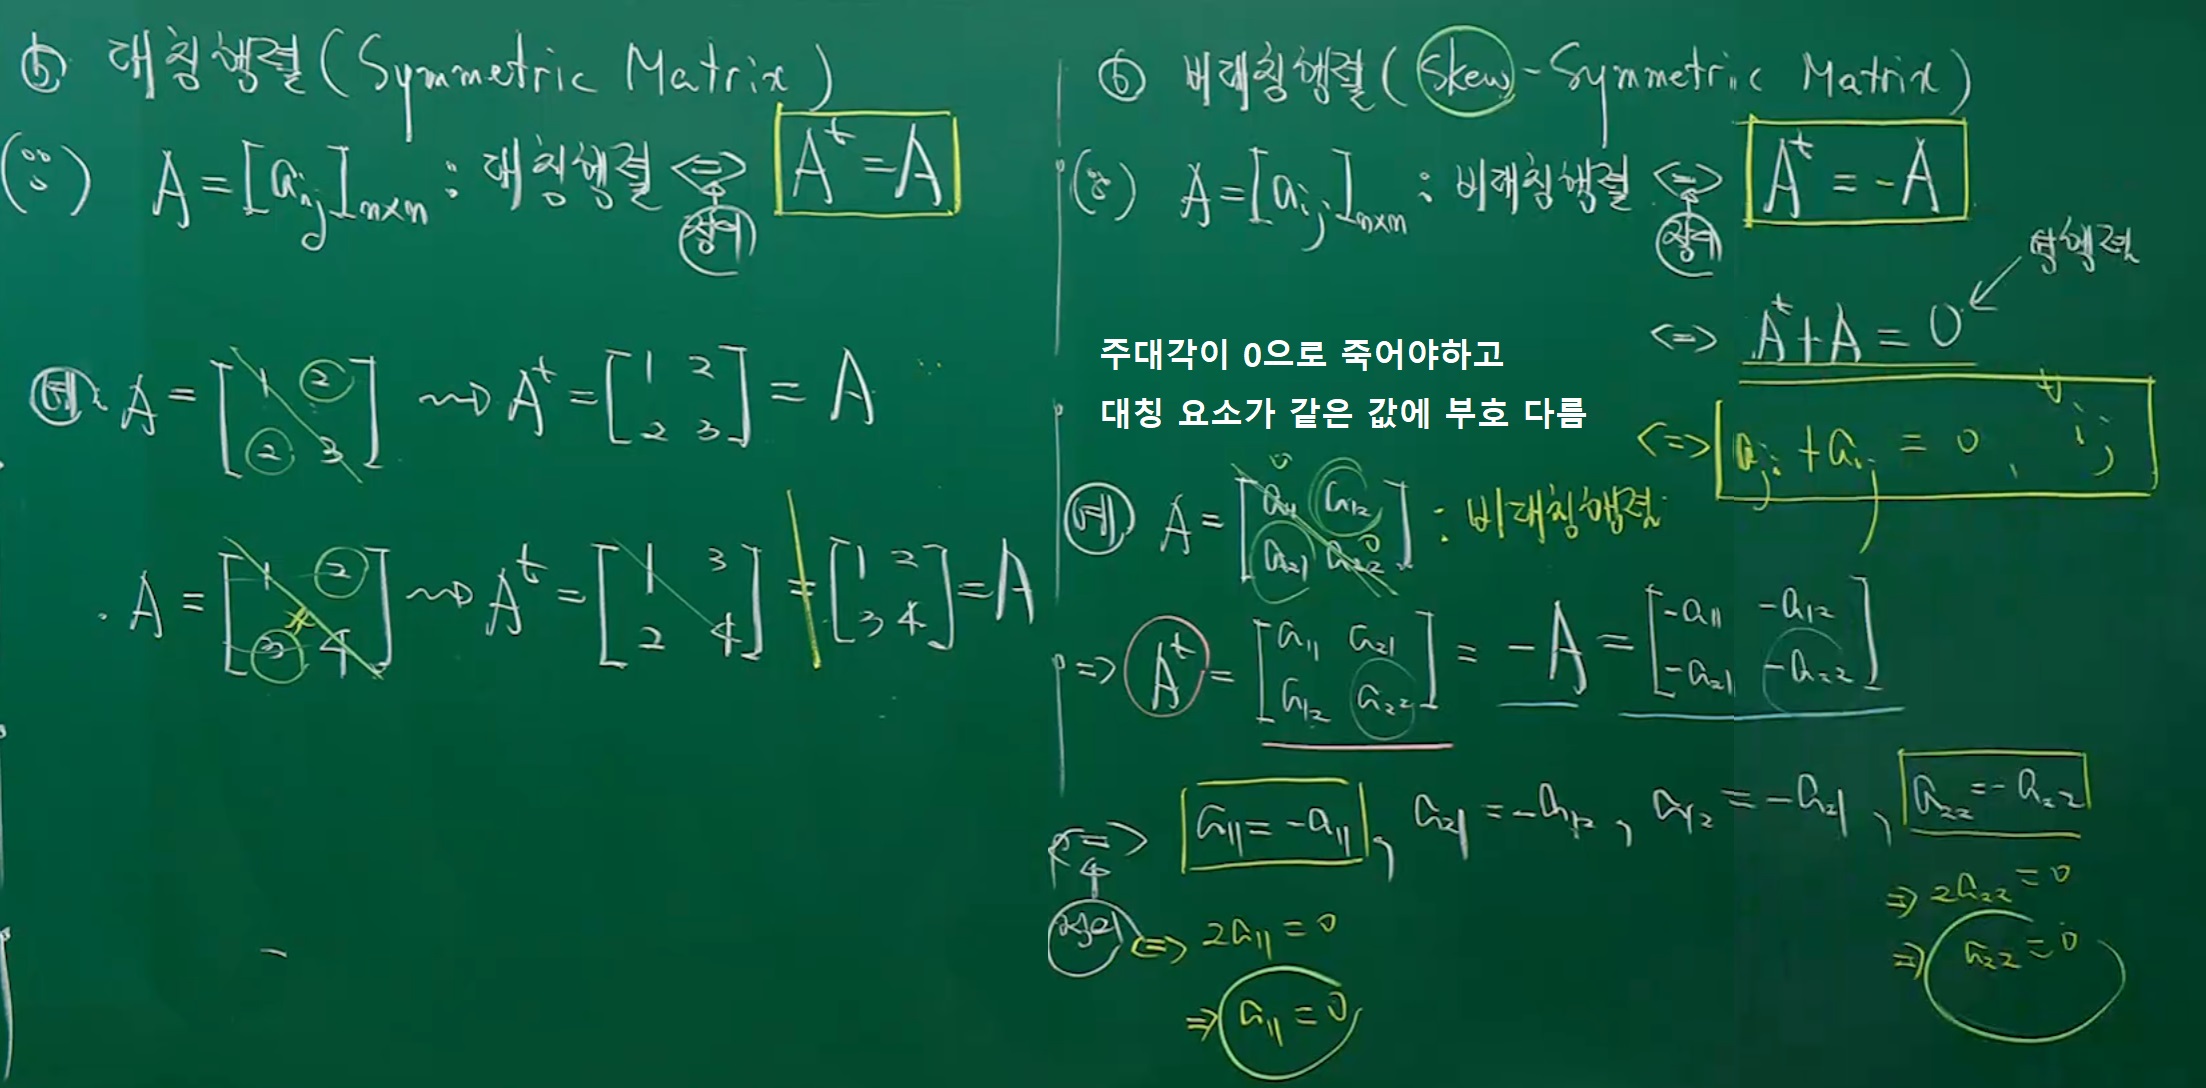 ⑤ 대칭행렬 (Symmetric Matrix)
(∵) A = [aᵢⱼ]ₙₓₙ : 대칭행렬 <=> Aᵗ = A
정의
예. A = [1 2; 2 3] ⇝ Aᵗ = [1 2; 2 3] = A
. A = [1 2; 3 4] ⇝ Aᵗ = [1 3; 2 4] ≠ [1 2; 3 4] = A
⑥ 비대칭행렬 (Skew-Symmetric Matrix)
(∵) A = [aᵢⱼ]ₙₓₙ : 비대칭행렬 <=> Aᵗ = -A
정의
영행렬
<=> Aᵗ + A = 0
주대각이 0으로 죽어야하고
대칭 요소가 같은 값에 부호 다름
<=> aⱼᵢ + aᵢⱼ = 0, ∀ i j
예 A = [a₁₁ a₁₂; a₂₁ a₂₂] : 비대칭행렬
0 0
=> Aᵗ = [a₁₁ a₂₁; a₁₂ a₂₂] = -A = [-a₁₁ -a₁₂; -a₂₁ -a₂₂]
<=> a₁₁ = -a₁₁, a₂₁ = -a₁₂, a₁₂ = -a₂₁, a₂₂ = -a₂₂
정의 <=> 2a₁₁ = 0
=> a₁₁ = 0
=> 2a₂₂ = 0
=> a₂₂ = 0